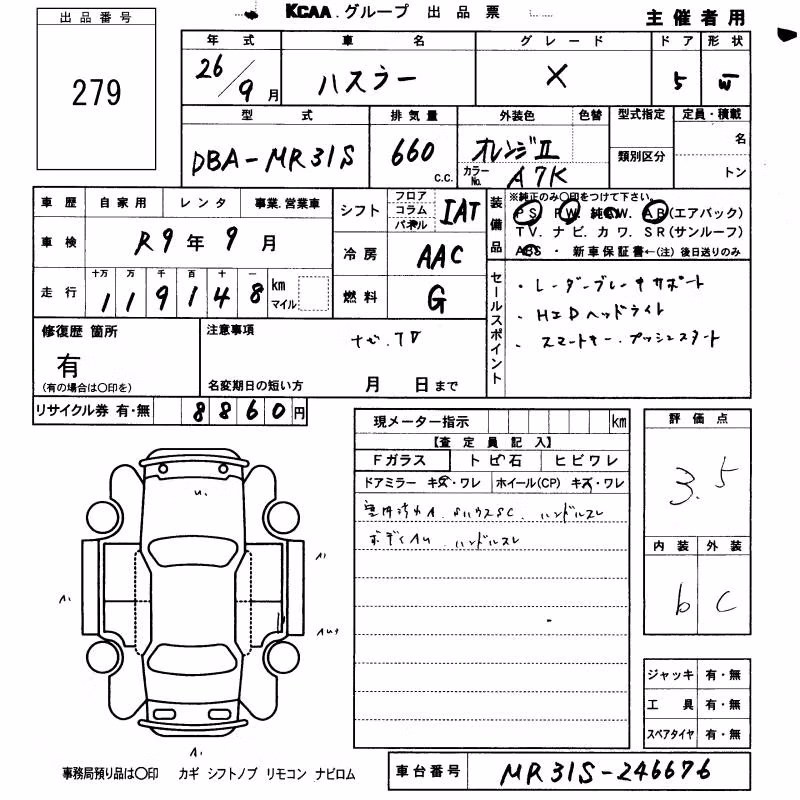 KCAA グループ 出品票
主催者用
出品番号
279
年式 車名 グレード ドア 形状
26/9月 ハスラー X 5 W
型式 排気量 外装色 色替 型式指定 定員・積載
DBA-MR31S 660 c.c. オレンジⅡ 名
類別区分
カラーNo. A7K トン
車歴 自家用 レンタ 事業.営業車
シフト フロア コラム パネル IAT
装備品 ※純正のみ〇印をつけて下さい。
PS. PW. 純AW. AB(エアバック)
TV. ナビ. カワ. SR(サンルーフ)
ABS ・ 新車保証書←(注)後日送りのみ
車検 R9年9月
冷房 AAC
走行 十万 万 千 百 十 一
119148 km マイル
燃料 G
セールスポイント
・レーダーブレーキサポート
・HIDヘッドライト
・スマートキー.プッシュスタート
修復歴 箇所
有
(有の場合は〇印を)
注意事項
ナビ.TV
名変期日の短い方 月 日まで
リサイクル券 有・無 8860円
現メーター指示 km
【査定員記入】
Fガラス トビ石 ヒビワレ
ドアミラー キズ・ワレ ホイール(CP) キズ・ワレ
ハンドルスレ
ハンドルスレ
評価点
3.5
内装 外装
b C
U.
A1
A1
A1
ジャッキ 有・無
工具 有・無
スペアタイヤ 有・無
事務局預り品は〇印 カギ シフトノブ リモコン ナビロム
車台番号 MR31S-246676